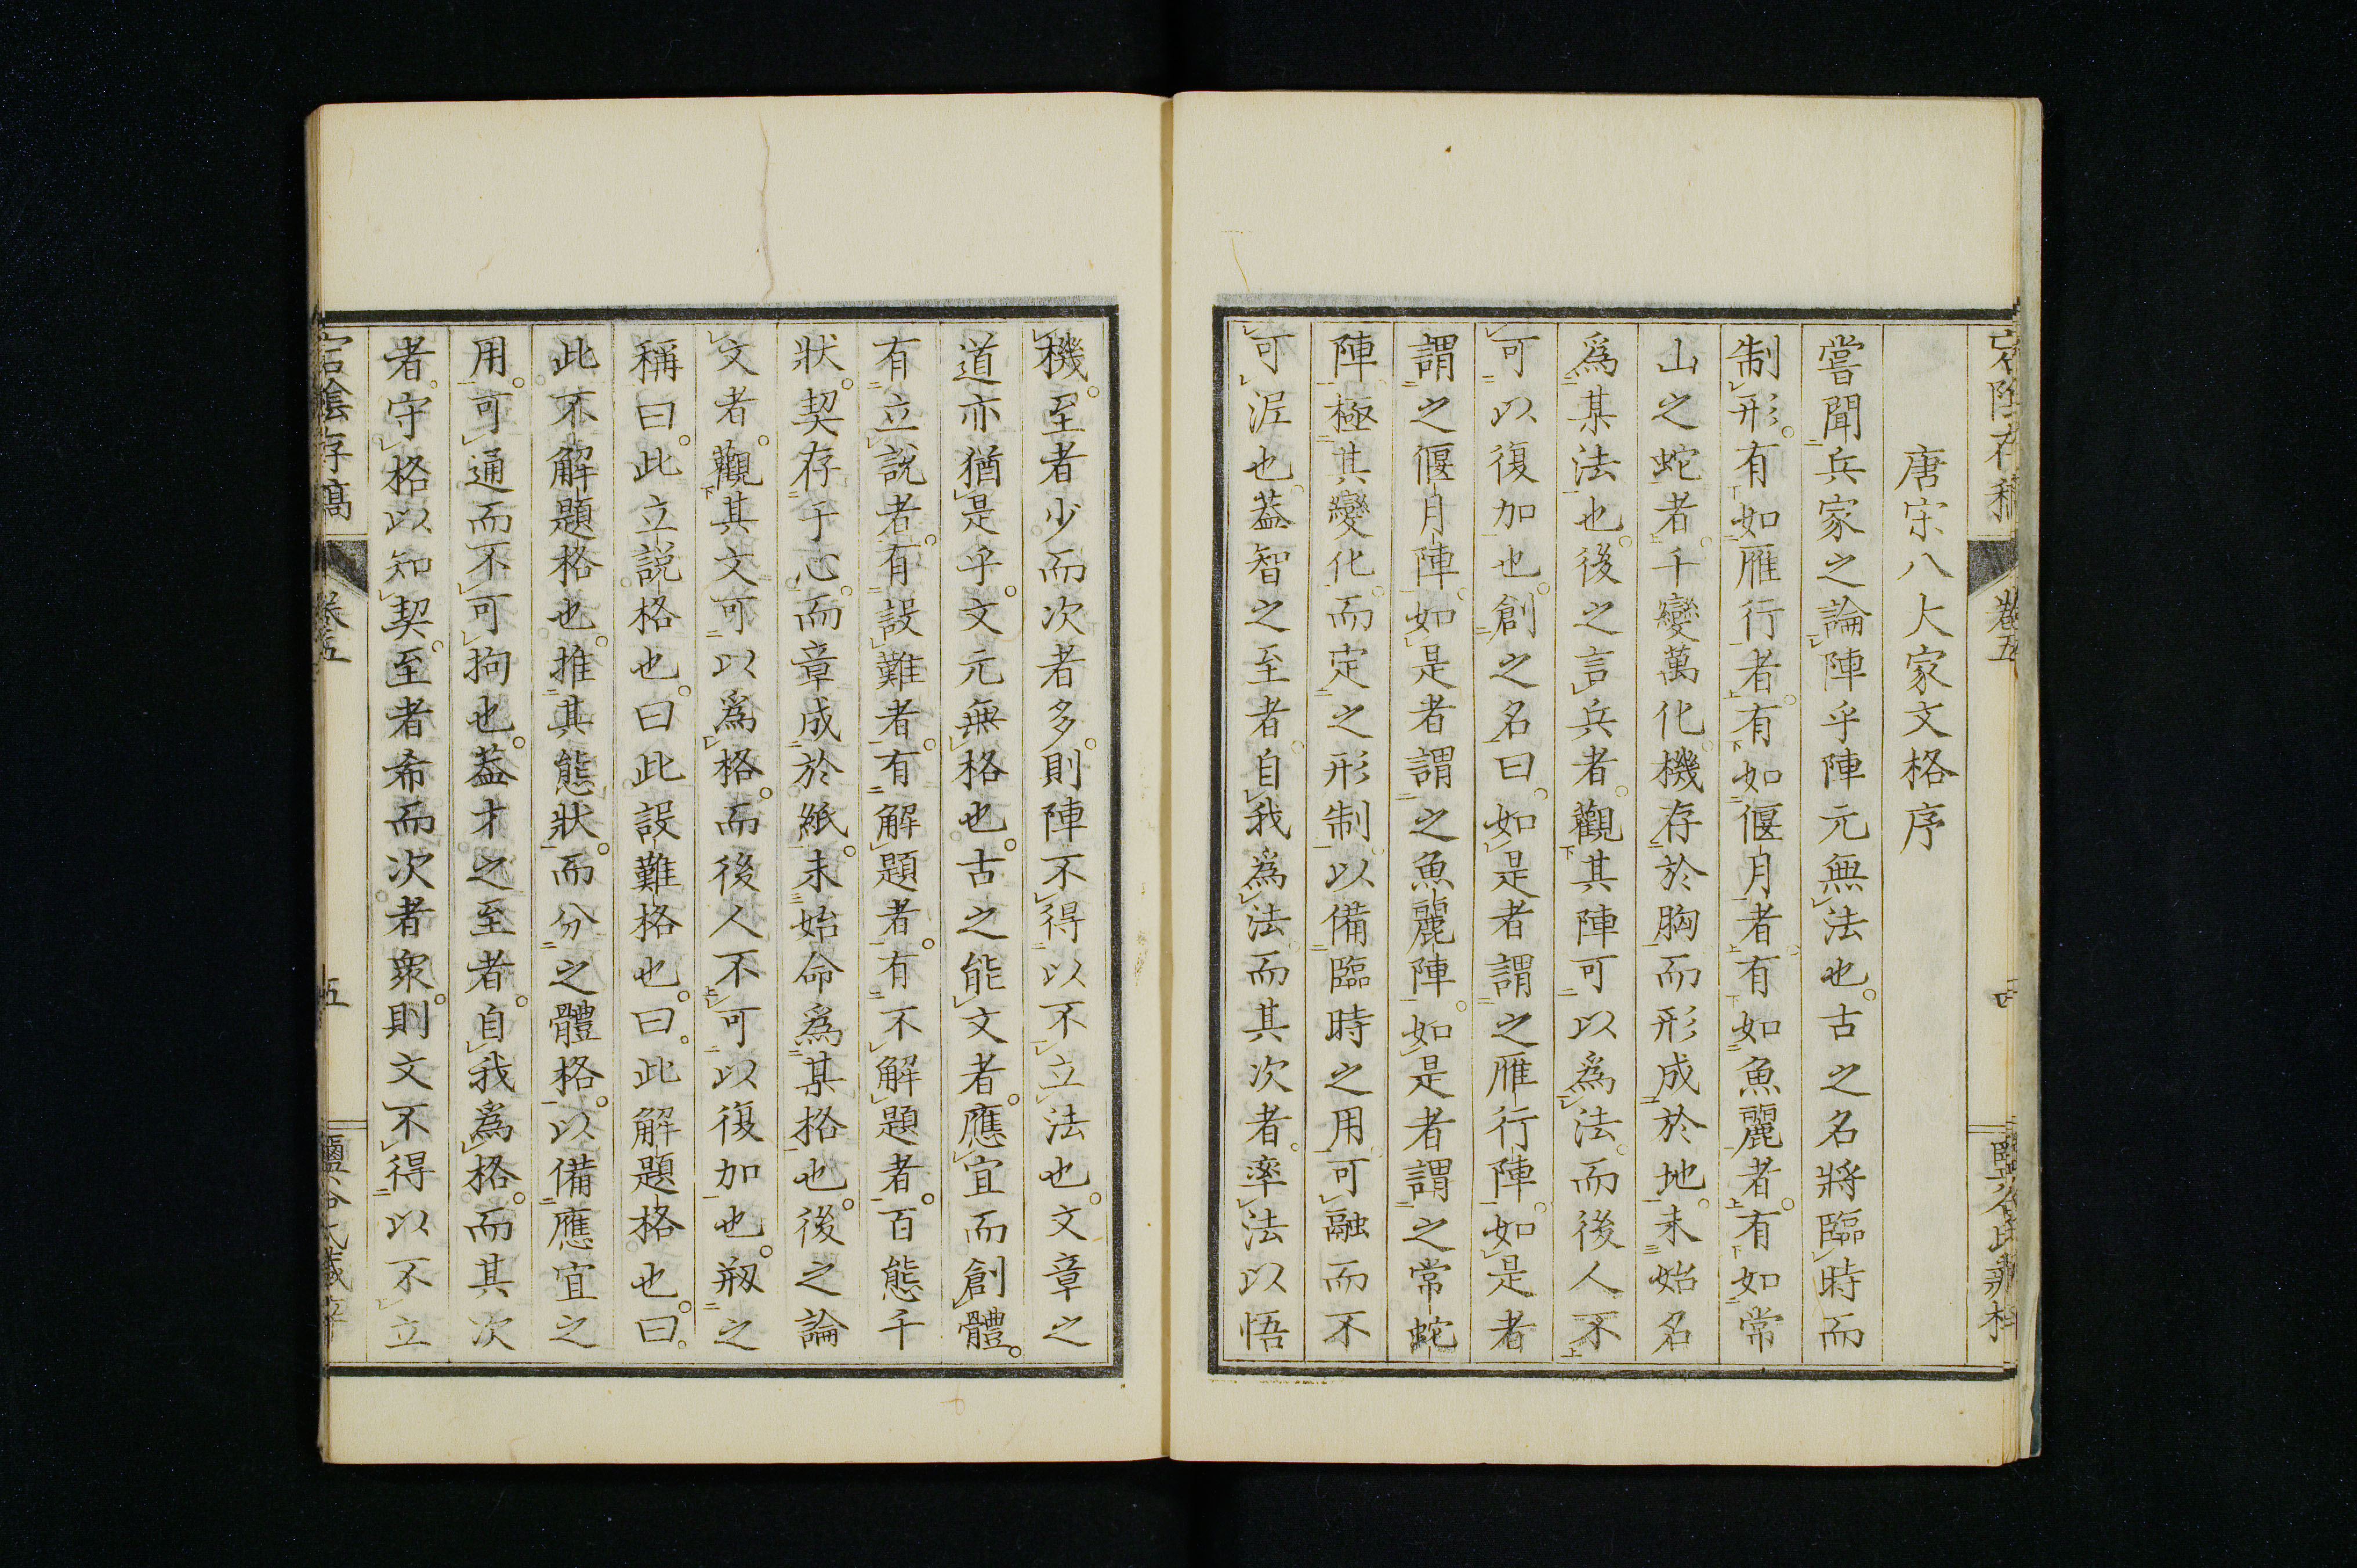 唐宋八大家文格序
嘗聞兵家之論陣乎陣元無法也。古之名將臨時而
制形。有如雁行者。有如偃月者。有如魚麗者。有如常
山之蛇者。千變萬化。機存於胸而形成於地。未始名
爲某法也。後之言兵者。觀其陣可以爲法。而後人不
可以復加也。創之名曰。如是者謂之雁行陣。如是者
謂之偃月陣。如是者謂之魚麗陣。如是者謂之常蛇
陣。極其變化。而定之形制。以備臨時之用。可融而不
可泥也。蓋智之至者。自我爲法。而其次者。率法以悟
機。至者少而次者多。則陣不得以不立法也。文章之
道亦猶是乎。文元無格也。古之能文者。應宜而創體。
有立說者。有設難者。有解題者。有不解題者。百態千
狀。契存于心。而章成於紙。未始命爲某格也。後之論
文者。觀其文可以爲格。而後人不可以復加也。剏之
稱曰。此立説格也。曰此設難格也。曰。此解題格也。曰。
此不解題格也。推其態狀。而分之體格。以備應宜之
用。可通而不可拘也。蓋才之至者。自我爲格。而其次
者。守格以知契。至者希而次者衆。則文不得以不立
宕陰存稿
卷五
五